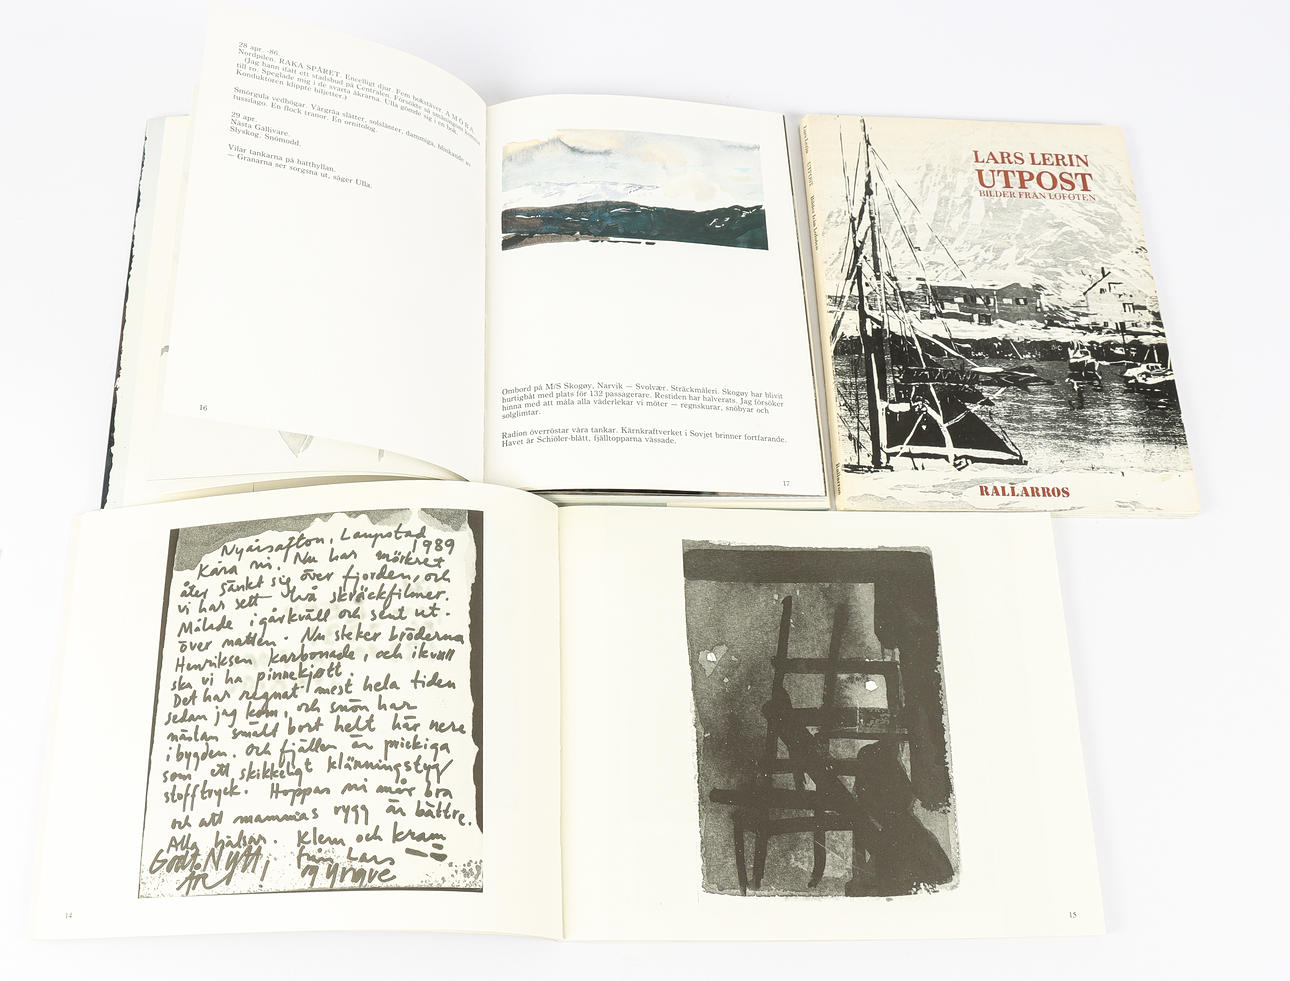 28 apr. -86.
Nordpilen. RAKA SPÅRET. Encelligt djur. Fem bokstäver. A M Ö B A.
(Jag hann ifatt ett stadsbud på Centralen. Försökte så småningom komma
till ro. Speglade mig i de svarta åkrarna. Ulla gömde sig i en bok.
Konduktören klippte biljetter.)
Smörgula vedhögar. Vårgråa slätter, solslänter, dammiga, blinkande av
tussilago. En flock tranor. En ornitolog.
29 apr.
Nästa Gällivare.
Slyskog. Snömodd.
Vilar tankarna på hatthyllan.
— Granarna ser sorgsna ut, säger Ulla.
16
Ombord på M/S Skogøy, Narvik — Svolvær. Sträckmåleri. Skogøy har blivit
hurtigbåt med plats för 132 passagerare. Restiden har halverats. Jag försöker
hinna med att måla alla väderlekar vi möter — regnskurar, snöbyar och
solglimtar.
Radion överröstar våra tankar. Kärnkraftverket i Sovjet brinner fortfarande.
Havet är Schiöler-blått, fjälltopparna vässade.
17
Lars Lerin UTPOST Bilder från Lofoten
Rallarros
LARS LERIN
UTPOST
BILDER FRÅN LOFOTEN
RALLARROS
Nyårsafton, Laupstad
1989
Kära ni. Nu har mörkret
åter sänkt sig över fjorden, och
vi har sett två skräckfilmer.
Målade igårkväll och sent ut-
över natten. Nu steker bröderna
Henriksen karbonade, och ikväll
ska vi ha pinnekjøtt.
Det har regnat mest hela tiden
sedan jag kom, och snön har
nästan smält bort helt här nere
i bygden. Och fjällen är prickiga
som ett skikkeligt klänningstyg
stofftryck. Hoppas ni mår bra
och att mammas rygg är bättre.
Alla hälsar. Klem och kram
från Lars
Godt Nytt
År
14
15